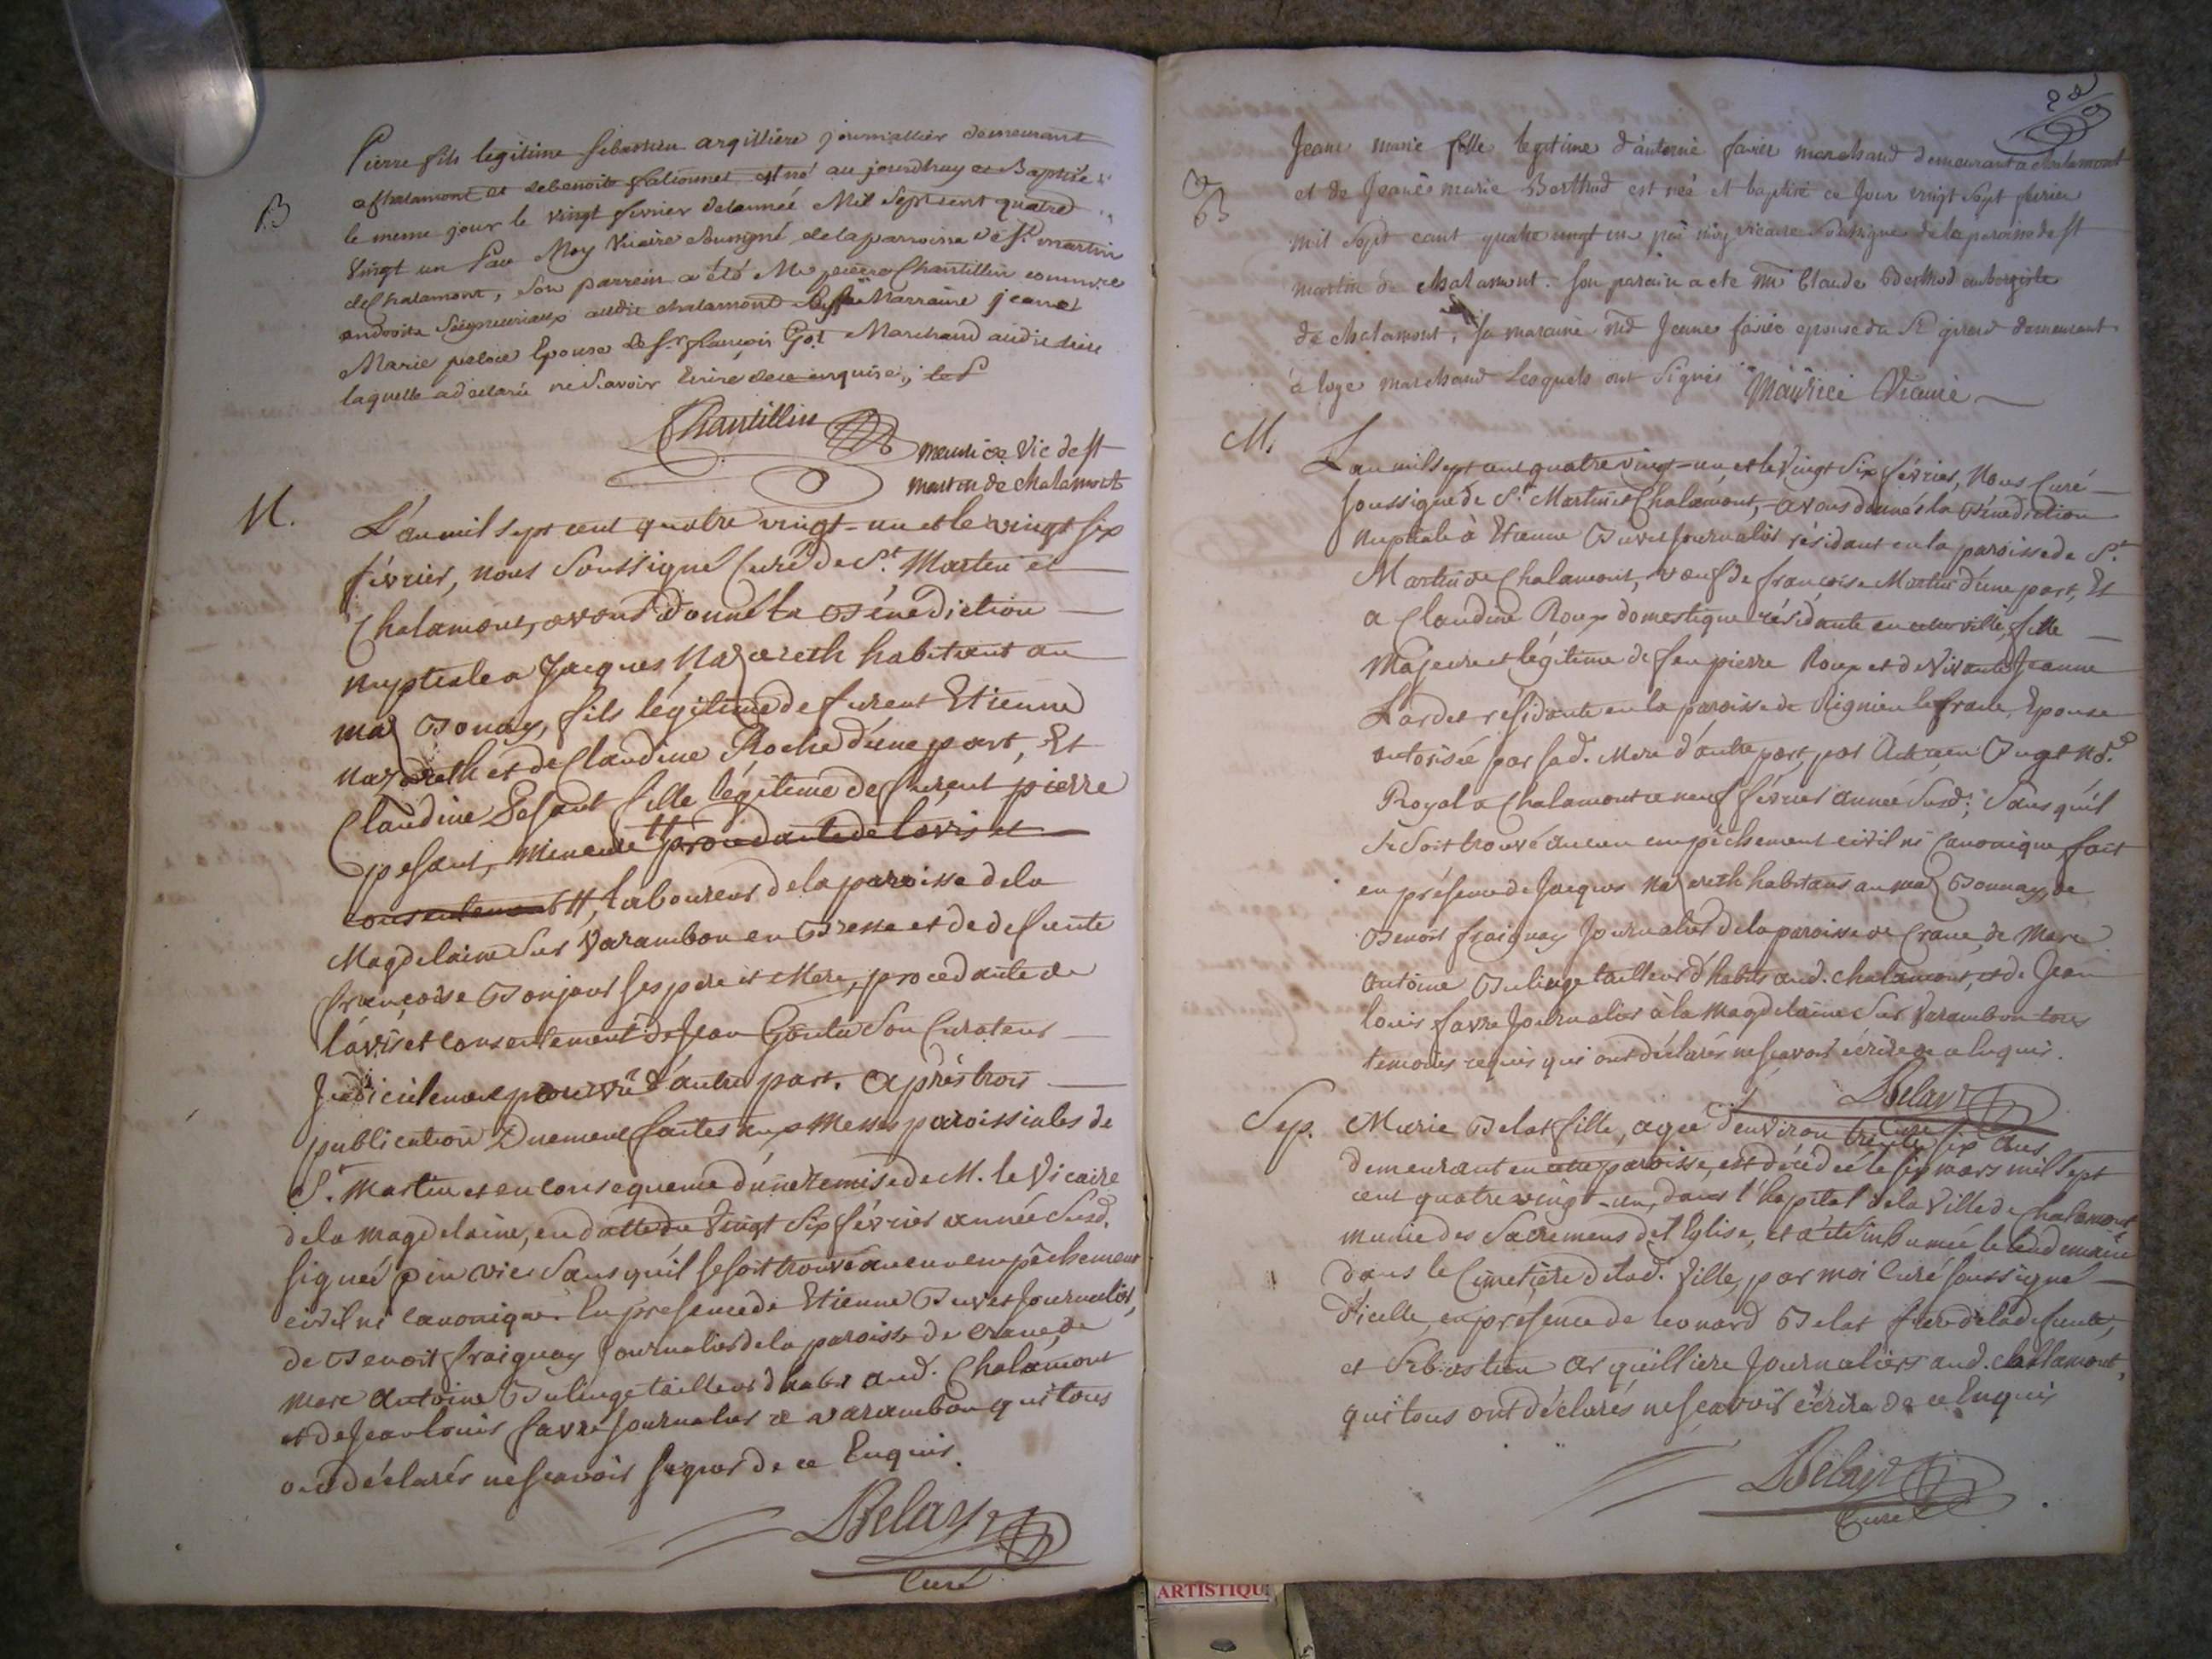 Pierre fils legitime sebastien argilliere journallier demeurant
a Chalamont et de benoite est né au jourdhuy et Baptisé
B
le meme jour le vingt fevrier de lannée Mil Sept cent quatre
Vingt un Par Moy Vicaire soussigné de la parroisse de St martin
de Chalamont, son parrein a été Me pierre Chantillin commire
endroits seigneuriaux audit chalamont Marraine jeanne
Marie Epouse de Sr françois Got Marchand audit lieu
laquelle a declaré ne savoir Ecrire de ce enquise,
Chantillin
maurice Vic de st
martin de chalamont
M.
L'an mil sept cent quatre vingt-un et le vingt six
février, nous soussigné Curé de St. Martin et
Chalamont, avons donné la Bénédiction
nuptiale a Jacques Nazareth habitant au
maz Bonay, fils légitime de furent Etienne
Nazareth et de Claudine Roche d'une part, Et
Claudine Pesant fille légitime de furent pierre
pesant, mineure # procedante de l'avis et
consentement #, laboureur de la paroisse de la
Magdelaine sur Varambon en Bresse et de defunte
françoise Bonjour ses pere et Mere, procedante de
l'avis et consentement de Jean Goutu son Curateur
Judicielement pourvu d'autre part. après trois
publication Duement faites aux Messes paroissiales de
St. Martin et en consequence d'une remise de M. le Vicaire
de la magdelaine, en datte du vingt six février année susd.
signée vic sans qu'il se soit trouvé aucun empêchement
civil ni canonique. En presence de Etienne Buvet Journalier,
de Benoit fraiguay Journalier de la paroisse de crane, de
marc antoine Bulinge tailleur d'habit aud. Chalamont
et de Jean louis favre Journalier a varambon qui tous
ont déclarés ne scavoir signer de ce Enquis.
Belay
Curé
28
Jeane marie fille legitime d'antoine favier marchand demeurant a chalamont
B
et de Jeane marie Berthod est née et baptisé ce jour vingt sept fevrier
mil sept cent quatre vingt un par moy vicaire soussigné de la paroisse de st
martin de chalamont. son parain a ete mr Claude Berthod aubergiste
de chalamont, sa maraine Jeane favier epouse du Sr girard demeurant
a loye marchand lesquels ont signés Maurice Vicaire
M.
L'an mil sept cent quatre vingt-un et le vingt six février, nous Curé
soussigné de St. Martin et Chalamont, avons donné la Bénédiction
nuptiale à Etienne Buvet Journalier résidant en la paroisse de St.
Martin de Chalamont, veuf de françoise Martin d'une part, Et
a Claudine Roux domestique résidante en cette ville, fille
Majeure et légitime de feu pierre Roux et de vivante Jeanne
Lardet résidante en la paroisse de Rignieu le franc, Epouse
autorisée par sad. Mere d'autre part, par Acte reçu Buget No.re
Royal a Chalamont ce neuf février année susd; sans qu'il
se soit trouvé aucun empêchement civil ni Canonique, fait
en présence de Jacques Nazareth habitans au maz Bonnay, de
Benoit fraiguay Journalier de la paroisse de Crane, de Marc
antoine Bulinge tailleur d'habits aud. chalamont, et de Jean
louis favre Journalier à la magdelaine sur Varambon tous
temoins requis qui ont déclarés ne scavoir écrire de ce Enquis.
Belay
Curé
Sep.
Marie Belat fille, agée d'environ trente six ans
demeurant en cette paroisse, est décédée le six mars mil sept
cent quatre vingt-un, dans l'hopital de la Ville de Chalamont
munie des Sacremens de l'Eglise, et a été inhumée le lendemain
dans le Cimetière de lad. Ville, par moi Curé soussigné
d'icelle, en presence de leonard Belat frere de la defunte,
et Sebastien arquilliere Journaliers aud. chalamont,
qui tous ont déclarés ne scavoir écrire de ce Enquis
Belay
Curé
ARTISTIQU